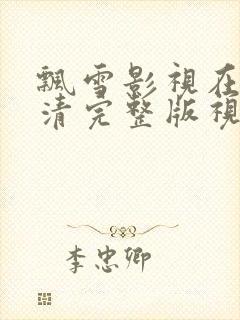 飄雪影視在
清完整版視
李忠卿